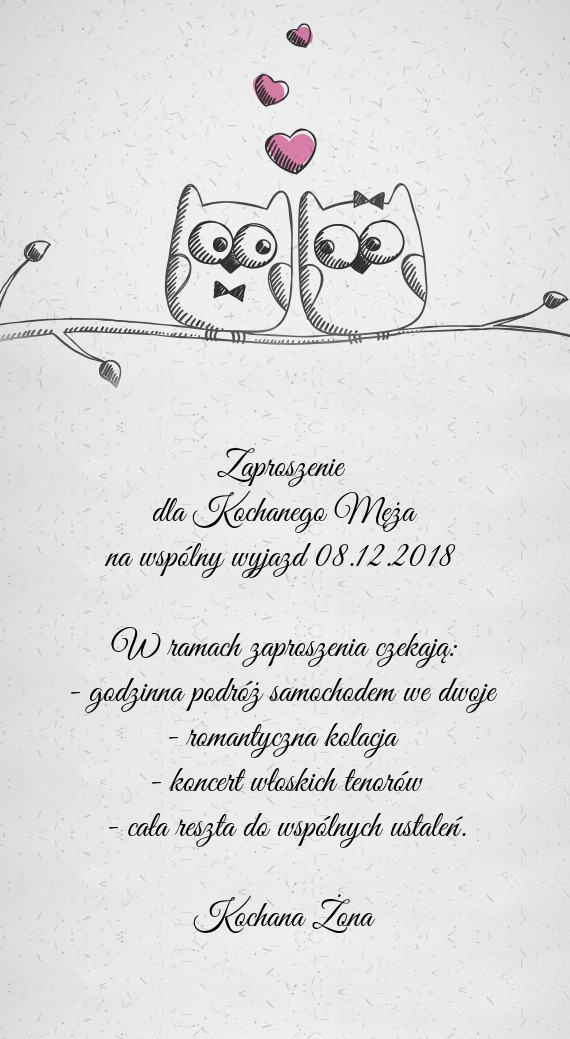 Zaproszenie
dla Kochanego Męża
na wspólny wyjazd 08.12.2018
W ramach zaproszenia czekają:
- godzinna podróż samochodem we dwoje
- romantyczna kolacja
- koncert włoskich tenorów
- cała reszta do wspólnych ustaleń.
Kochana Żona